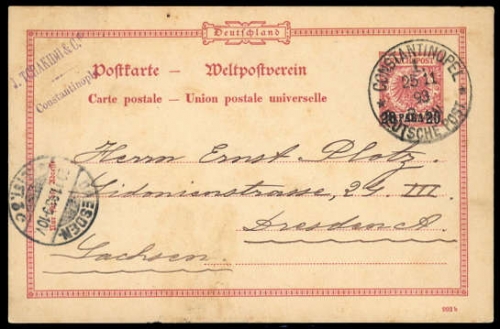 Deutschland
Postkarte — Weltpostverein
Carte postale — Union postale universelle
& Co.
Constantinople
CONSTANTINOPEL
1
25 11
93
DEUTSCHE POST
20 PARA 20
Herrn Ernst Plotz.
Sidonienstrasse, 2 III.
Dresden A.
Sachsen.
DRESDEN